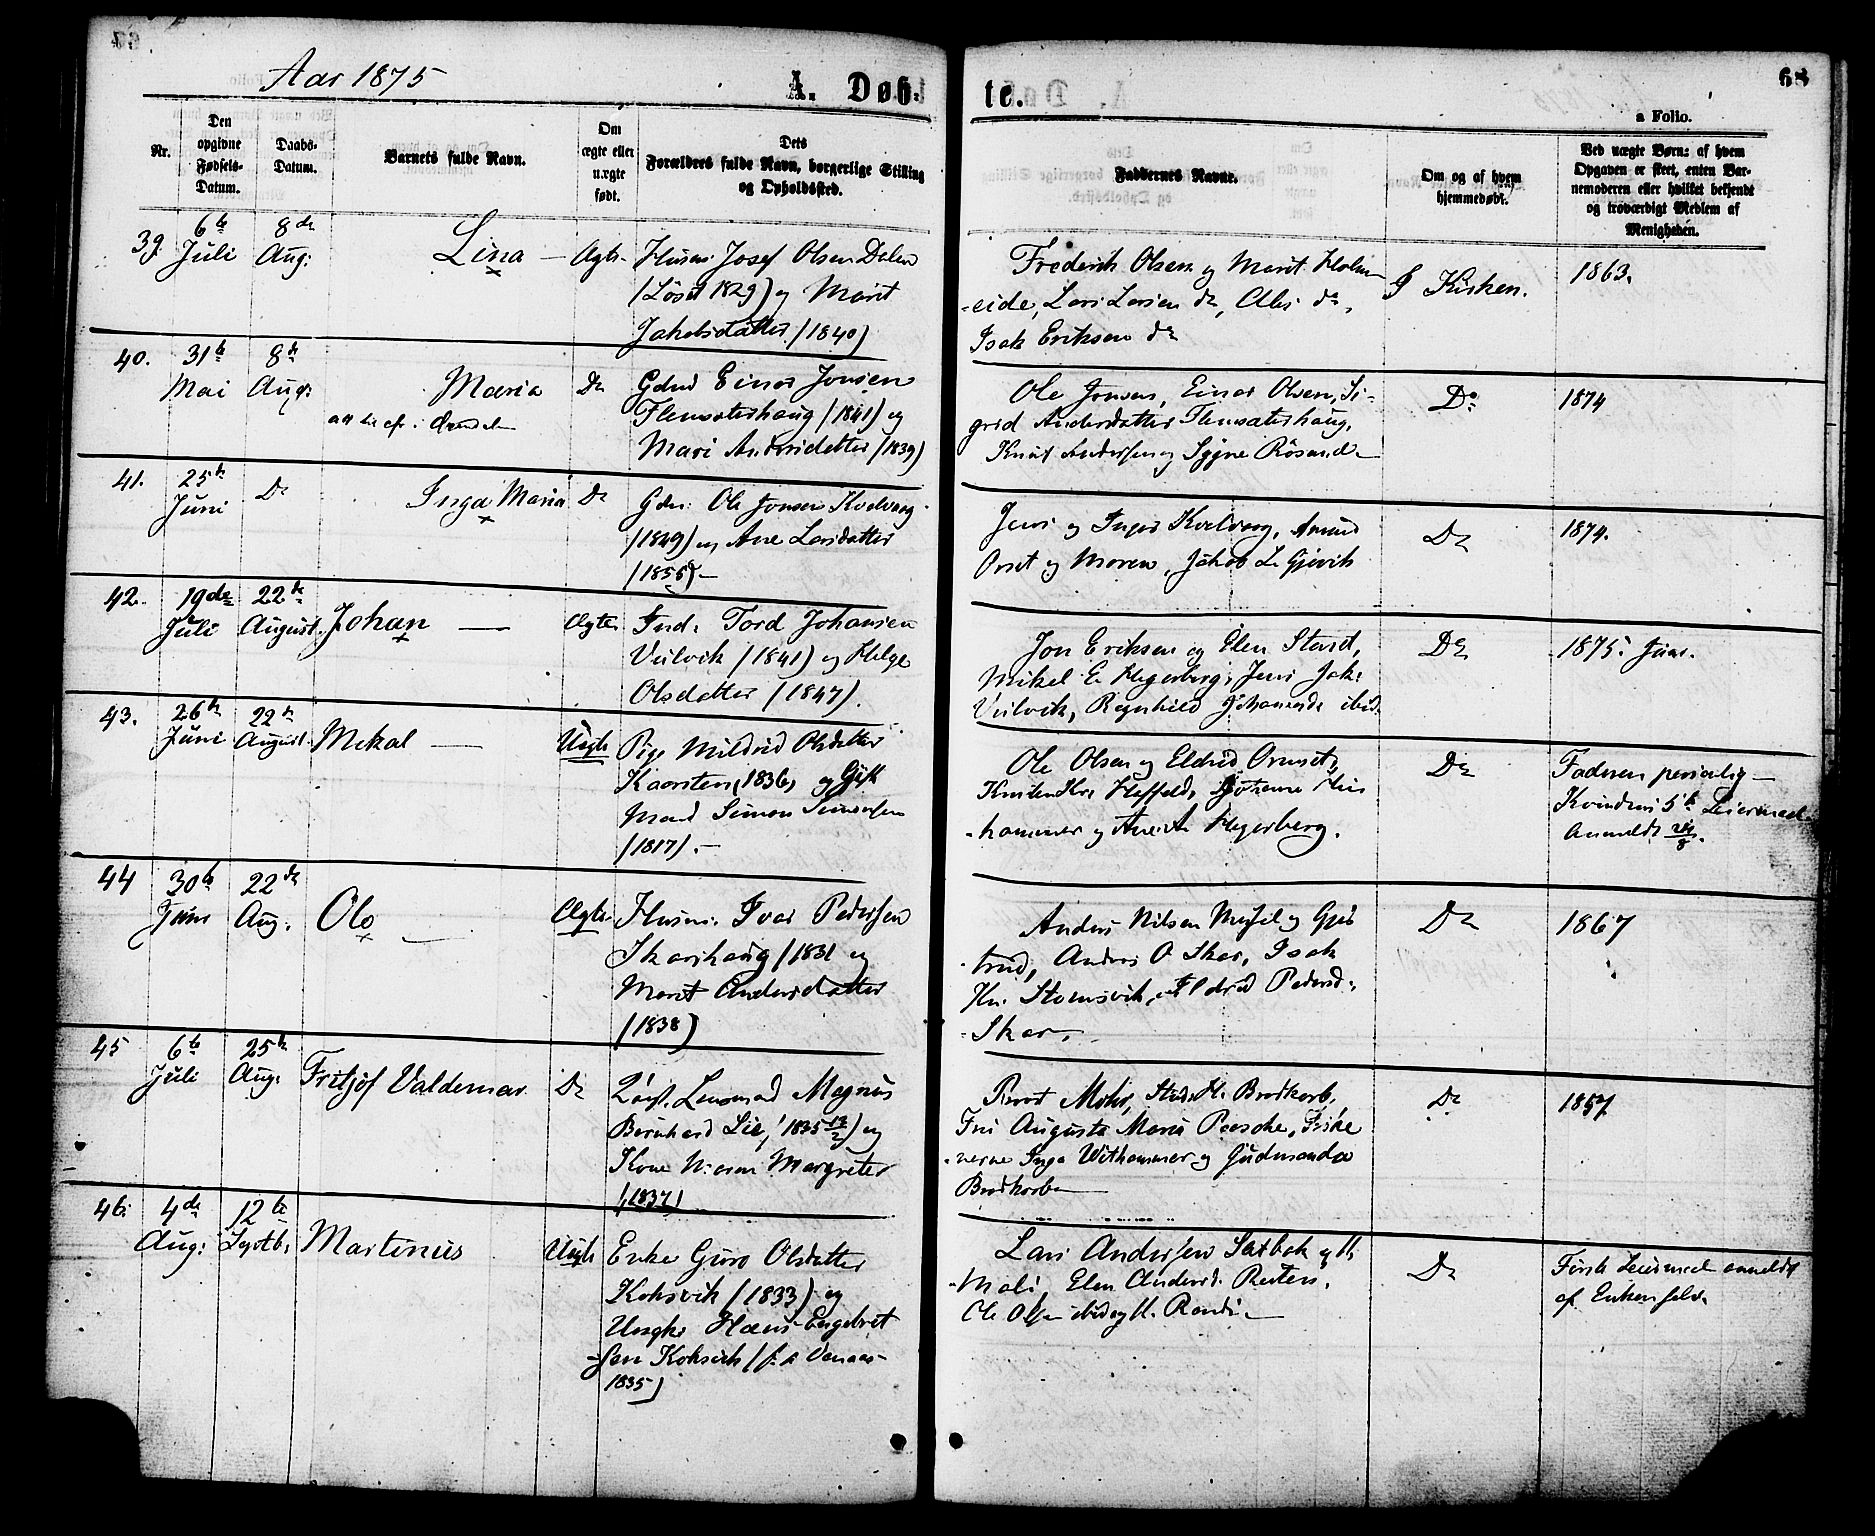 Aar 1875
A. Døb-
te.
68
a Folio.
Nr.
Den opgivne Fødsels-Datum.
Daabs-Datum.
Barnets fulde Navn.
Om ægte eller uægte født.
Dets Forældres fulde Navn, borgerlige Stilling og Opholdssted.
Faddernes Navne.
Om og af hvem hjemmedøbt.
Ved uægte Børn: af hvem Opgaven er skeet, enten Barnemoderen eller hvilket bekjendt og troværdigt Medlem af Menigheden.
39. 6te 8de Lina — Ægte. Husm: Josef Olsen Dalen
Juli Aug: (Löset 1829) og Marit
Jakobsdatter (1840)
Frederik Olsen og Marit Holm-
-eide, Lars Larsen do,
Isak Eriksen do
I Kirken.
1863.
40. 31te 8de Maria Do Gdmd Einar Jonsen
Mai Aug: Flemsæterhaug (1841) og
Mari Andersdatter (1839)
Ole Jonsen, Einar Olsen, Si-
grid Andersdatter Flemsæterhaug,
Knut Andersen og Sygne Rösand
Do
1874
41. 25te Do Inga Maria Do Gdm: Ole Jonsen Kvalvaag
Juni (1849) og Ane Larsdatter
(1855) —
Jens og Inger Kvalvaag, Amund
Orset og Moren, Jakob L. Gjevik
Do
1874.
42. 19de 22de Johan — Ægte Ind. Tord Johansen
Juli August Veilvik (1841) og Helge
Olsdatter (1847).
Jon Eriksen og Elen Stand,
Mikel E Hegerberg, Jens Joh:
Veilvik, Ragnhild Johannesd: ibid.
Do
1875. Juni.
43. 26te 22de Mekal — Uægte Pige Mildrid Olsdatter
Juni August Karsten (1836) og Gift
Mand Simon Simonsen
(1817). —
Ole Olsen og Eldrid Orset,
-hammer og Ane A. Hegerberg.
Do
Faderen personlig —
Kvindens 5te Leiermaal
Anmeldt
44 30te 22de Ole — Ægte. Husm. Ivar Pedersen
Juni Aug. Skarshaug (1831 og
Marit Andersdatter
(1838)
Anders Nilsen og Gjer-
trud, Anders O Skar, Isak
Eldrid Pedersd:
Skar.
Do
1867
45 6te 25de Fritjof Valdemar Do Lensmand Magnus
Juli Aug. Bernhard Lie, (1835) og
Kone Maren Margrete
(1837)
Provst Mohr, Stud. H. Brodkorb,
Fru Augusta Marie Paasche, Frøke-
nerne Inga Withammer og Gudmanda
Brodkorb —
Do
1857
46. 4de 12te Martinus Uægte Enke Guro Olsdatter
Aug: Septb. Kohsvik (1833) og
Ungkr Hans Engebret-
-sen Kohsvik (f. p. Venaas
1835)
Lars Andersen Saxbak og H.
Mali, Elen Andersd. Reiten,
Ole Olsen ibid og H. Randi. —
Do
Første Leiermaal anmeldt
af Enken selv.